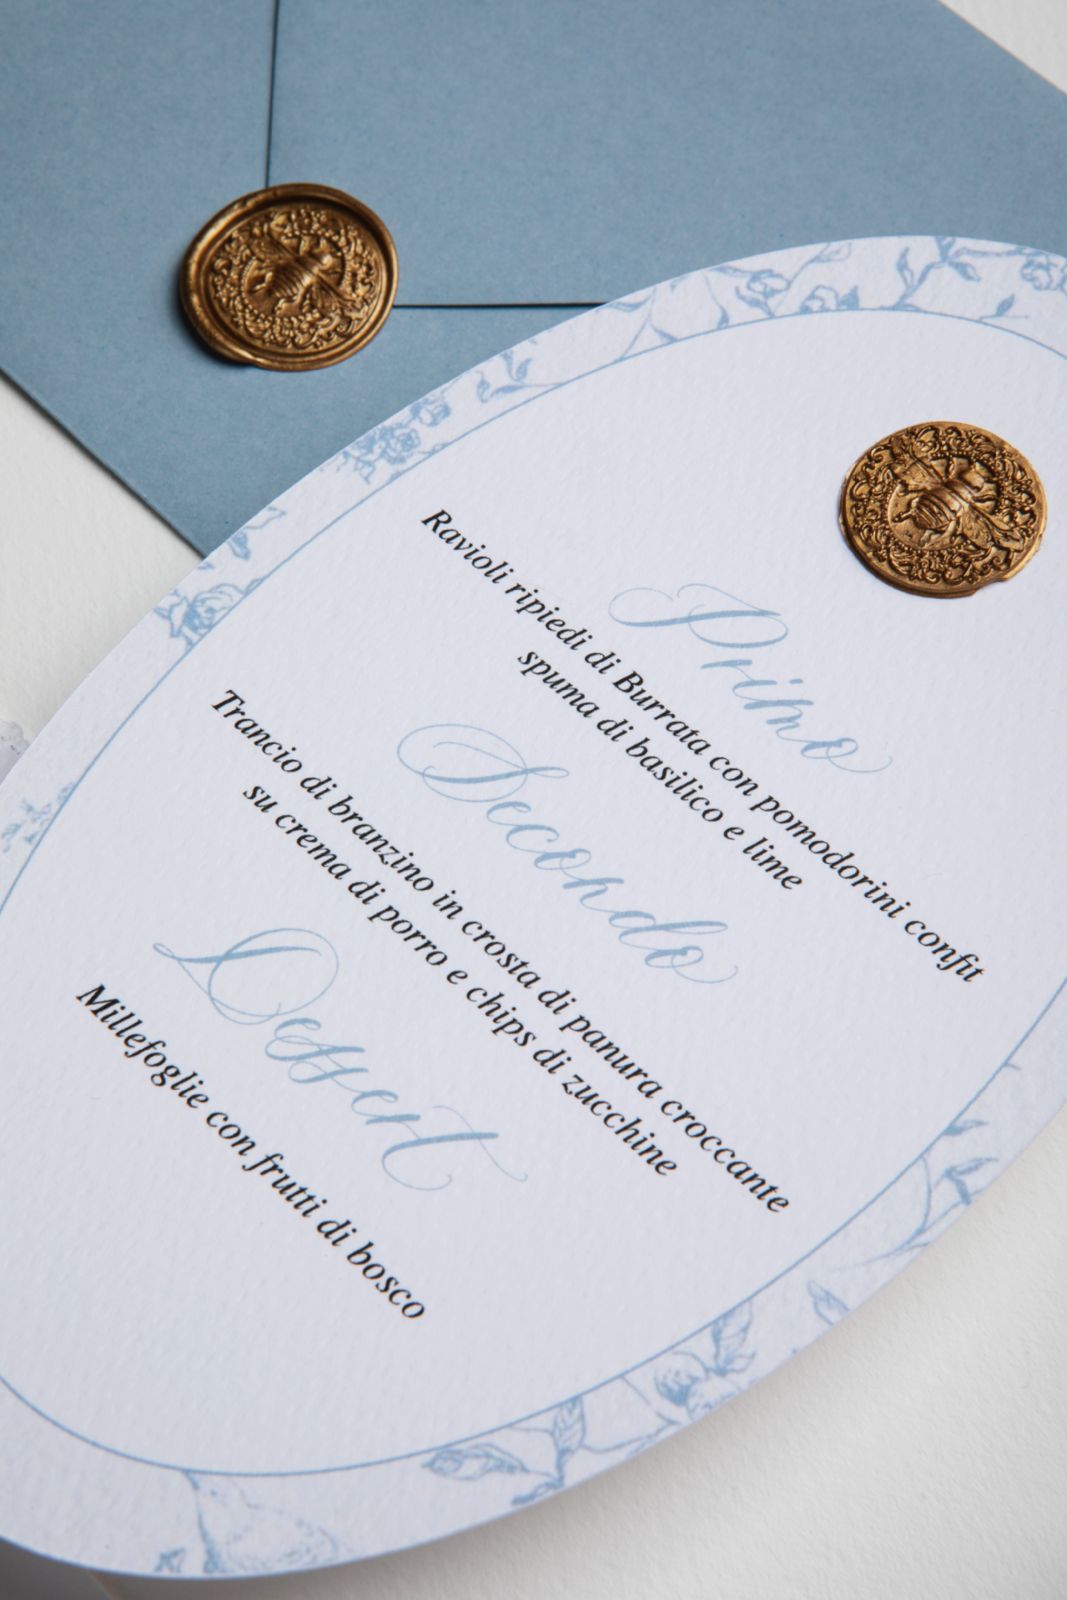 Primo
Ravioli ripiedi di Burrata con pomodorini confit
spuma di basilico e lime
Secondo
Trancio di branzino in crosta di panura croccante
su crema di porro e chips di zucchine
Dessert
Millefoglie con frutti di bosco